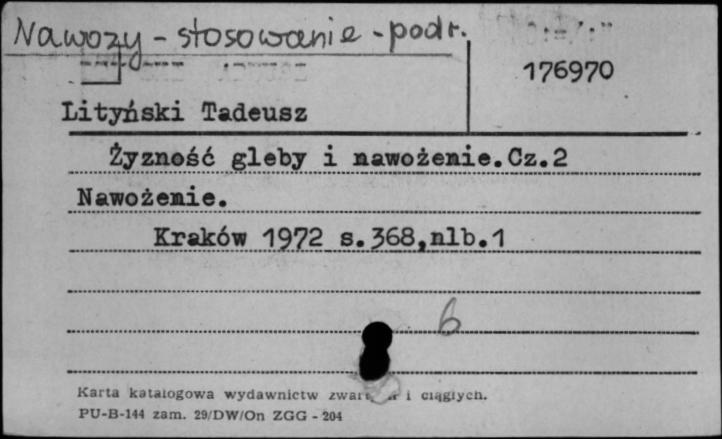 Nawozy - stosowanie - podr.
176970
Lityński Tadeusz
Żyzność gleby i nawożenie.Cz.2
Nawożenie.
Kraków 1972 s.368,nlb.1
6
Karta katalogowa wydawnictw i ciągłych.
PU-B-144 zam. 29/DW/On ZGG - 204